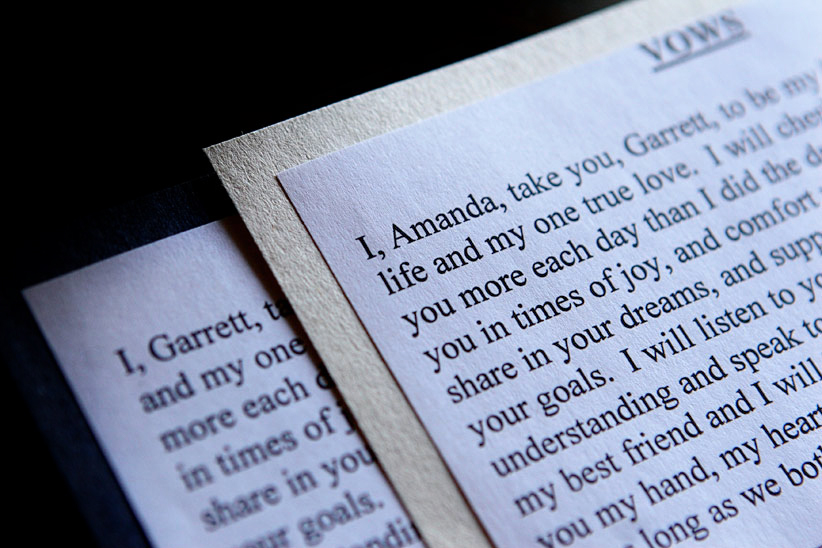 VOWS
I, Amanda, take you, Garrett, to be my
life and my one true love. I will
you more each day than I did the
you in times of joy, and comfort
share in your dreams, and
your goals. I will listen to
understanding and speak
my best friend and I will
you my hand, my heart
long as we
I, Garrett,
and my one
more each
in times of
share in
your goals.